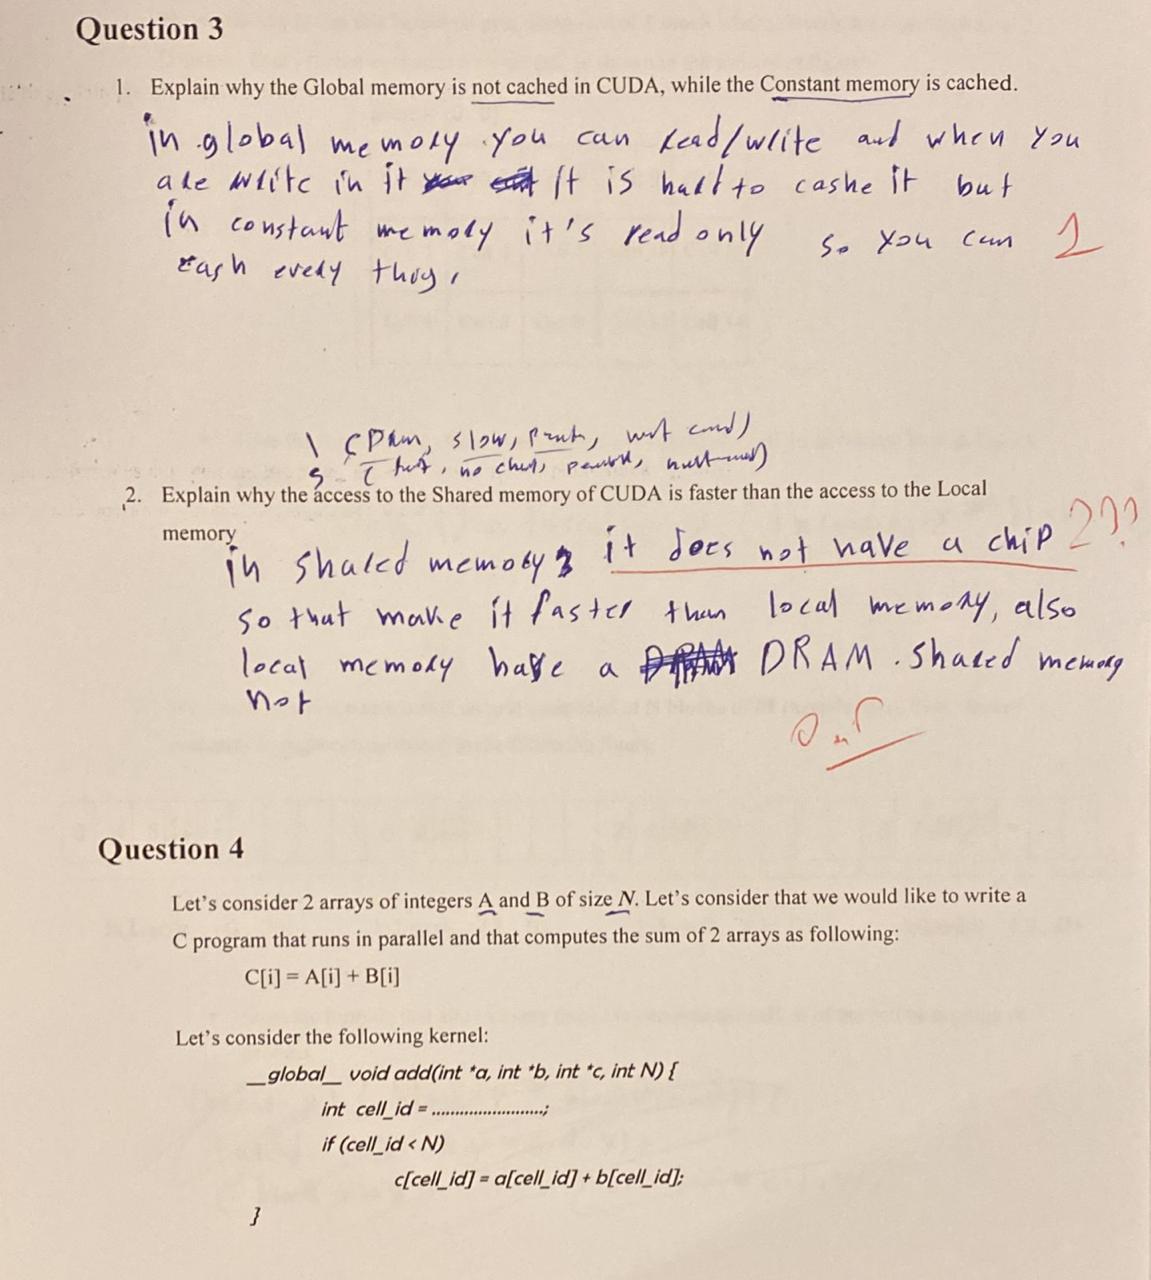 Question 3
1. Explain why the Global memory is not cached in CUDA, while the Constant memory is cached.
in global memory you can read/write and when you
are write in it it is hard to cashe it but
in constant memory it's read only so you can
cash every
1
(DRAM, slow,
no
2. Explain why the access to the Shared memory of CUDA is faster than the access to the Local
memory
in shared memory it does not have a chip ???
so that make it faster than local memory, also
local memory have a DRAM. shared memory
not
Question 4
Let's consider 2 arrays of integers A and B of size N. Let's consider that we would like to write a
C program that runs in parallel and that computes the sum of 2 arrays as following:
C[i] = A[i] + B[i]
Let's consider the following kernel:
__global__ void add(int *a, int *b, int *c, int N) {
int cell_id = ........................;
if (cell_id < N)
c[cell_id] = a[cell_id] + b[cell_id];
}